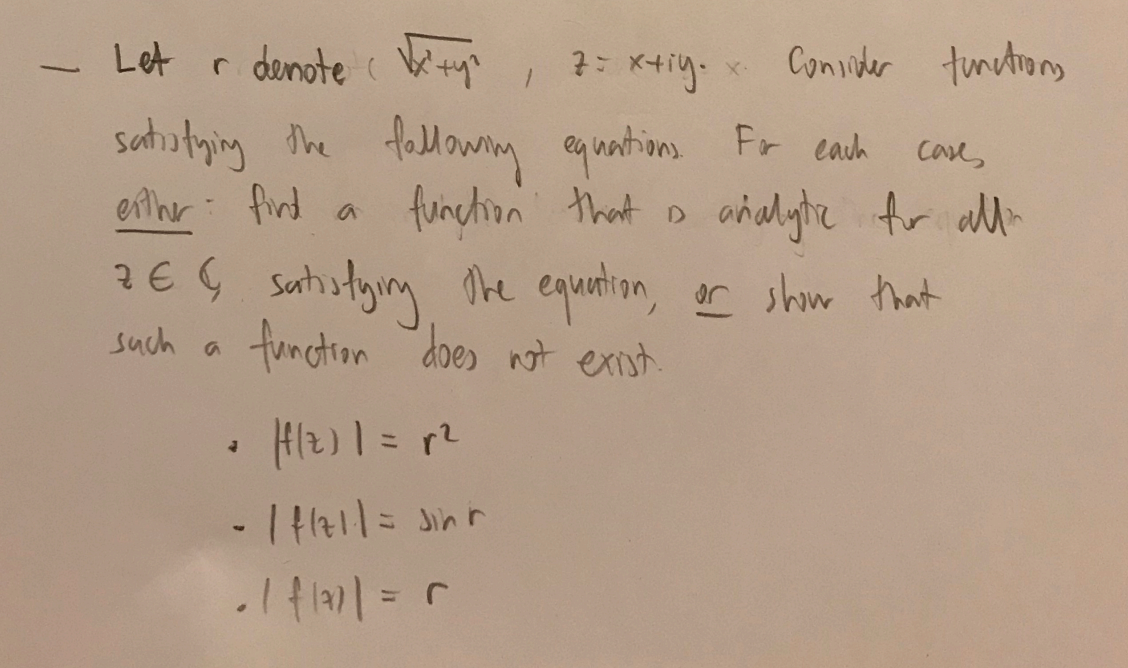 — Let r denote √x²+y² , z = x+iy. Consider functions
satisfying the following equations. For each case,
either: find a function that is analytic for all
z ∈ ℂ, satisfying the equation, or show that
such a function does not exist.
• |f(z)| = r²
- |f(z)| = sin r
• |f(z)| = r